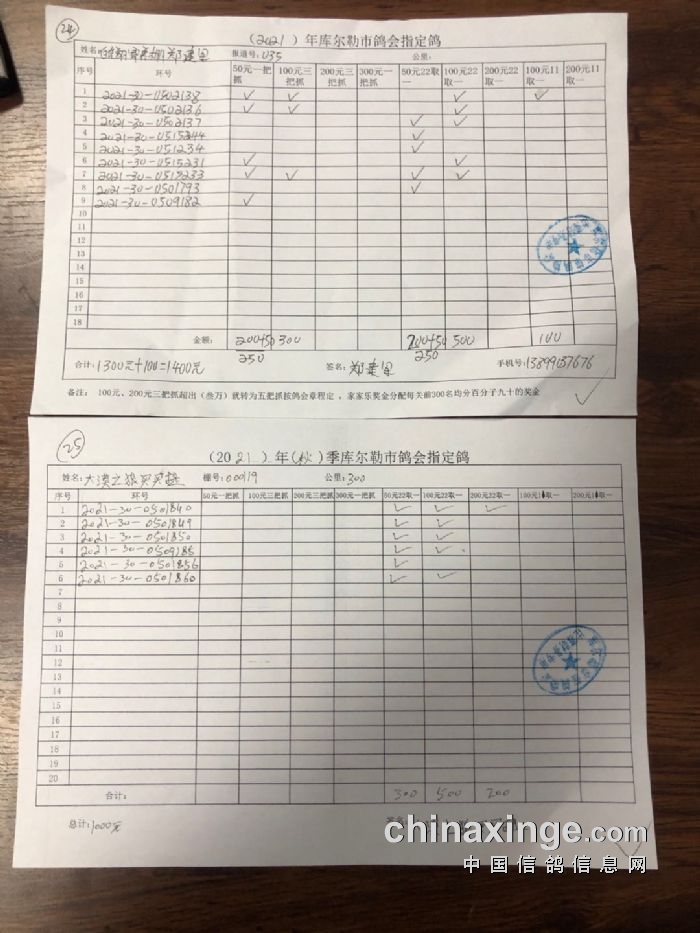 24
（2021）年库尔勒市鸽会指定鸽
姓名: 郑建星 报道号: 035 公里:
序号 环号 50元一把抓 100元三把抓 200元三把抓 300元一把抓 50元22取一 100元22取一 200元22取一 100元11取一 200元11取一
1 2021-30-0502138 ✓ ✓ ✓ ✓
2 2021-30-0502136 ✓ ✓ ✓
3 2021-30-0502137 ✓ ✓
4 2021-30-0515244 ✓
5 2021-30-051234 ✓
6 2021-30-0515231 ✓ ✓
7 2021-30-0515233 ✓ ✓ ✓ ✓
8 2021-30-0501793 ✓
9 2021-30-0509182 ✓
10
11
12
13
14
15
16
17
18
金额: 200+50 300 200+50 500 100
250 250
合计: 1300元+100=1400元 签名: 郑建星 手机号: 13899037676
备注： 100元、200元三把抓超出（叁万）就转为五把抓按鸽会章程定，家家乐奖金分配每关前300名均分百分子九十的奖金
25
（2021）年（秋）季库尔勒市鸽会指定鸽
姓名: 大漠之狼 棚号: 000119 公里: 300
序号 环号 50元一把抓 100元三把抓 200元三把抓 300元一把抓 50元22取一 100元22取一 200元22取一 100元1取一 200元1取一
1 2021-30-0501840 ✓ ✓ ✓
2 2021-30-0501849 ✓ ✓
3 2021-30-0501850 ✓ ✓
4 2021-30-0509185 ✓ ✓
5 2021-30-0501856 ✓
6 2021-30-0501860 ✓ ✓
7
8
9
10
11
12
13
14
15
16
17
18
19
20
合计: 300 500 200
总计: 1000元
chinaxinge.com
中国信鸽信息网